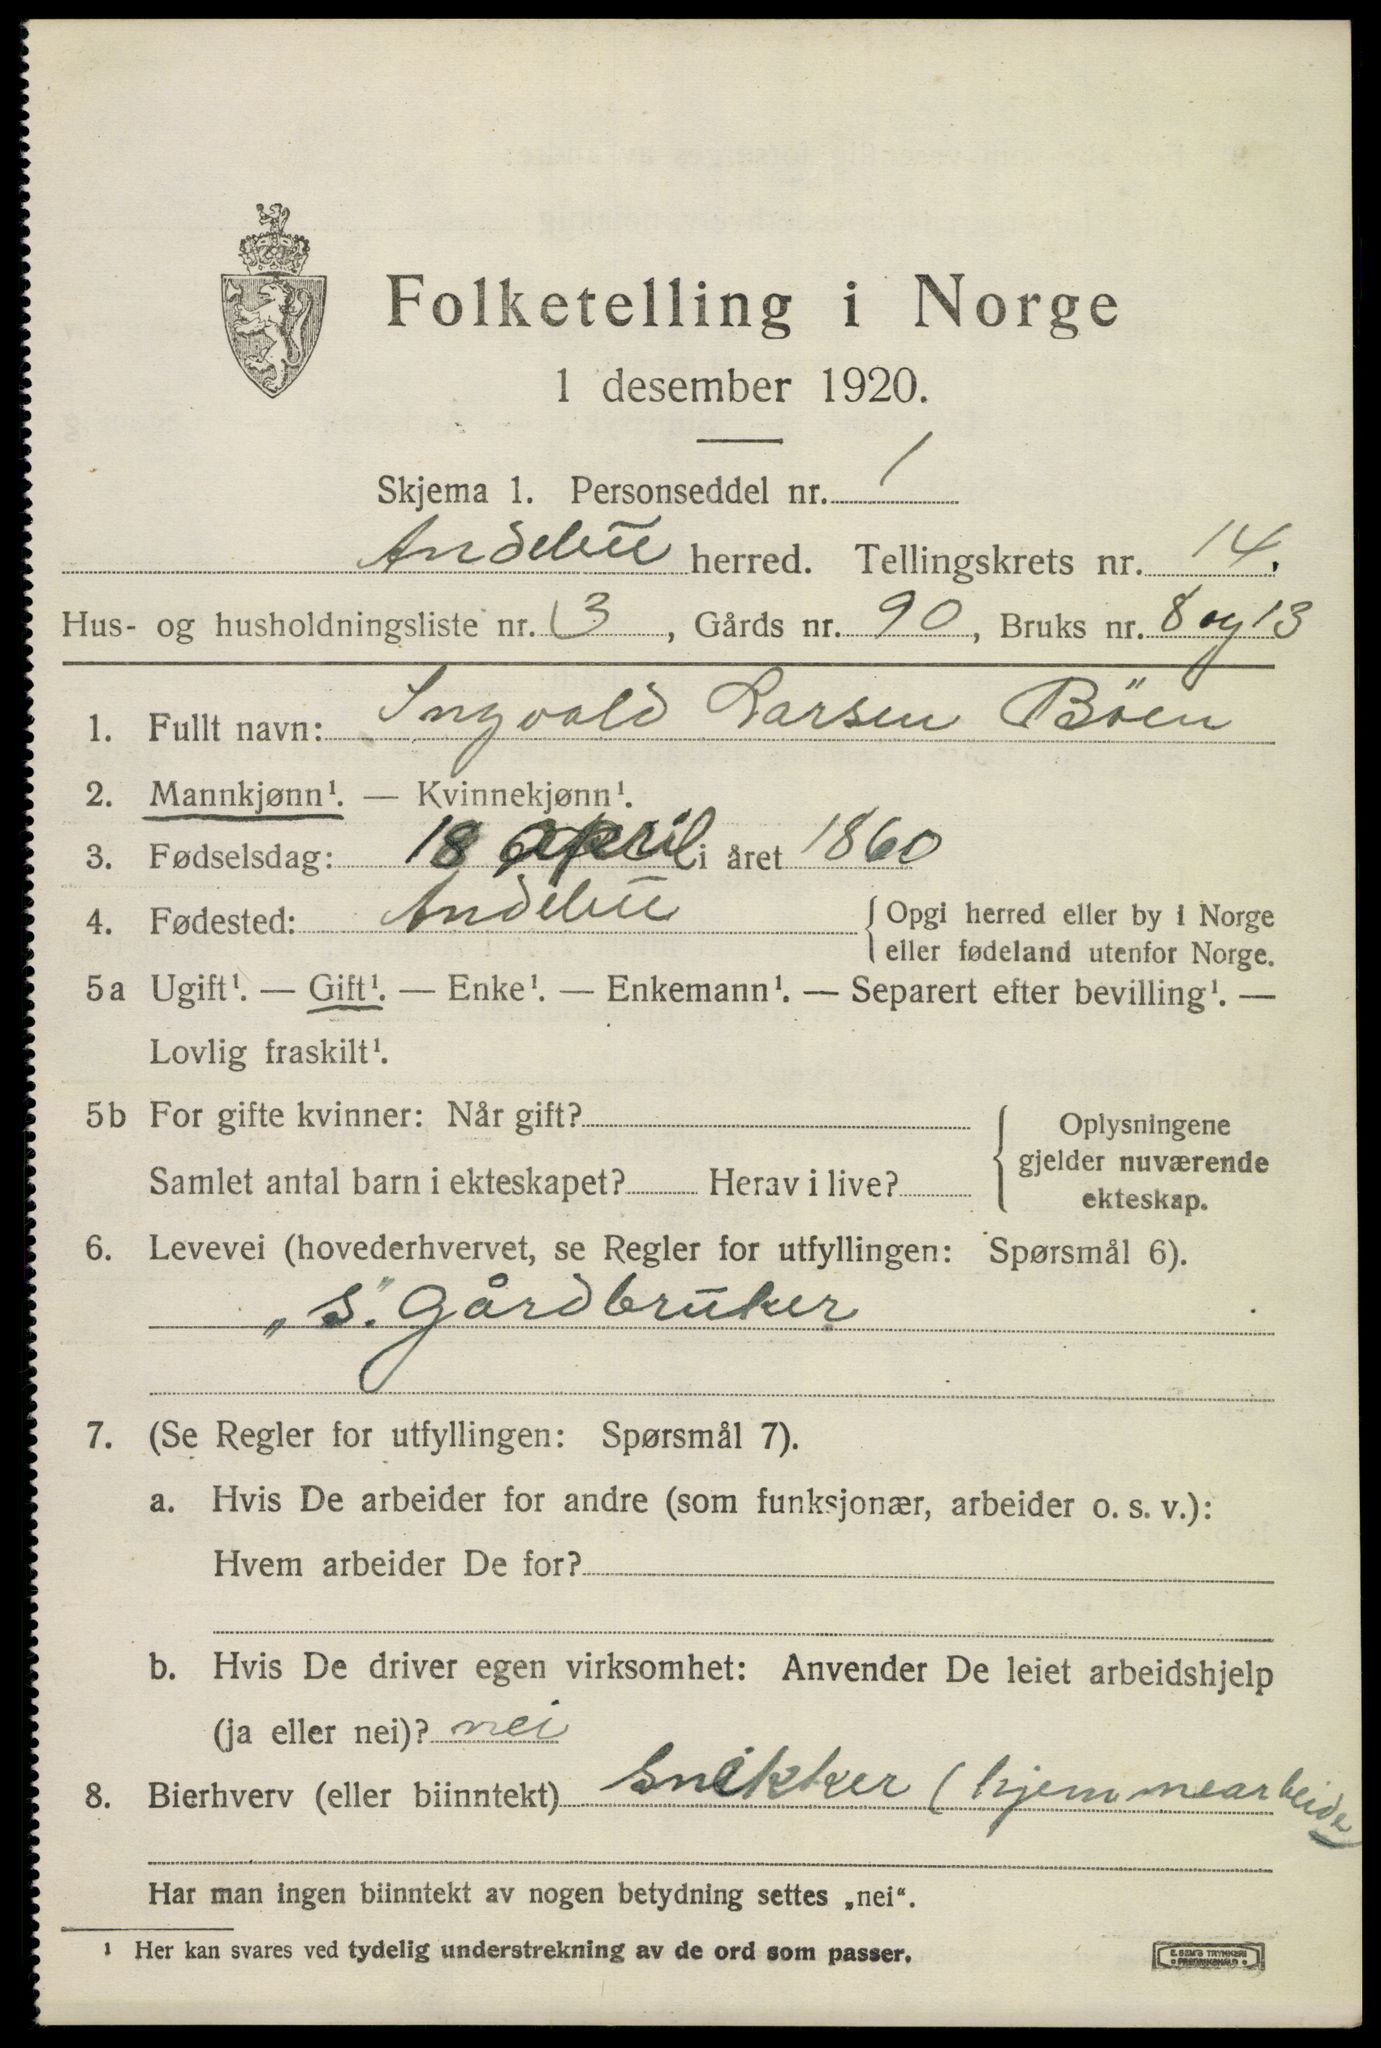 Folketelling i Norge
1 desember 1920.
Skjema 1. Personseddel nr. 1
Andebu herred. Tellingskrets nr. 14.
Hus- og husholdningsliste nr. 3, Gårds nr. 90, Bruks nr. 8 og 13
1. Fullt navn: Ingvald Larsen Böen
2. Mannkjønn¹. — Kvinnekjønn¹.
3. Fødselsdag: 18 april i året 1860
4. Fødested: Andebu { Opgi herred eller by i Norge
eller fødeland utenfor Norge.
5a Ugift¹. — Gift¹. — Enke¹. — Enkemann¹. — Separert efter bevilling¹. —
Lovlig fraskilt¹.
5b For gifte kvinner: Når gift? { Oplysningene
gjelder nuværende
Samlet antal barn i ekteskapet? Herav i live? ekteskap.
6. Levevei (hovederhvervet, se Regler for utfyllingen: Spørsmål 6).
„S." Gårdbruker
7. (Se Regler for utfyllingen: Spørsmål 7).
a. Hvis De arbeider for andre (som funksjonær, arbeider o. s. v.):
Hvem arbeider De for?
b. Hvis De driver egen virksomhet: Anvender De leiet arbeidshjelp
(ja eller nei)? nei
8. Bierhverv (eller biinntekt) Snekker (hjemmearbeide
Har man ingen biinntekt av nogen betydning settes „nei“.
¹ Her kan svares ved tydelig understrekning av de ord som passer.
E. SEM'S TRYKKERI
FREDRIKSHALD